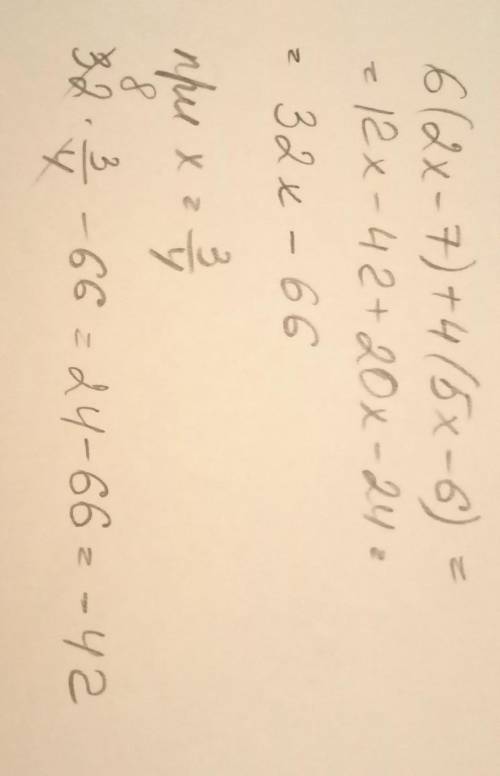 6(2x-7)+4(5x-6)=
=12x-42+20x-24=
= 32x-66
при x = 3/4
8
32 · 3/4 - 66 = 24-66 = -42